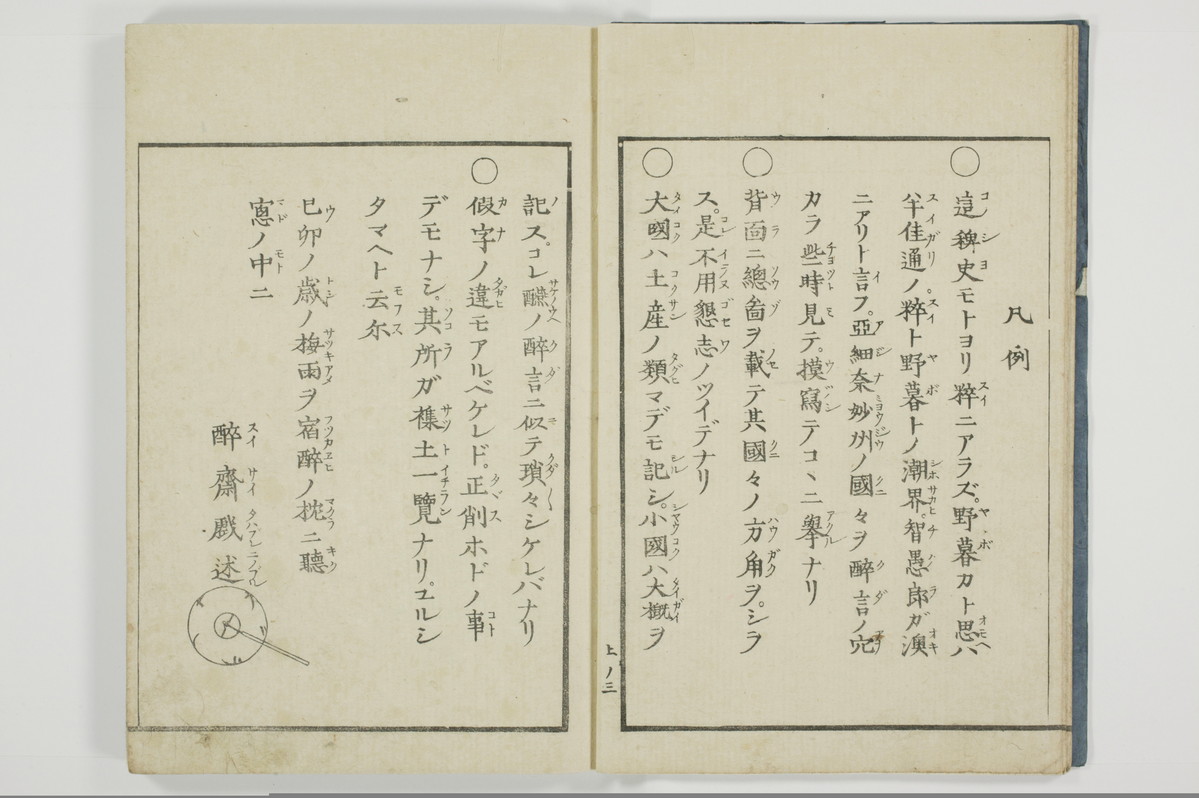 凡例
○這稗史モトヨリ粋ニアラズ。野暮カト思ハ
半佳通ノ。粹ト野暮トノ潮界。智愚郎ガ澳
ニアリト言フ。亞細奈妙州ノ國々ヲ醉言ノ穴
カラ些時見テ。摸寫テコヽニ擧ナリ
○背面ニ總畣ヲ載テ其國々ノ方角ヲ。シラ
ス。是不用懇志ノツイデナリ
○大國ハ土産ノ類マデモ記シ。小國ハ大概ヲ
上ノ三
記ス。コレ醼ノ醉言ニ似テ瑣々シケレバナリ
○假字ノ違モアルベケレド。正削ホドノ事
デモナシ。其所ガ襍土一覽ナリ。ユルシ
タマヘト云尓
巳卯ノ歳ノ梅雨ヲ宿醉ノ枕ニ聽
窓ノ中ニ
醉齋戲述